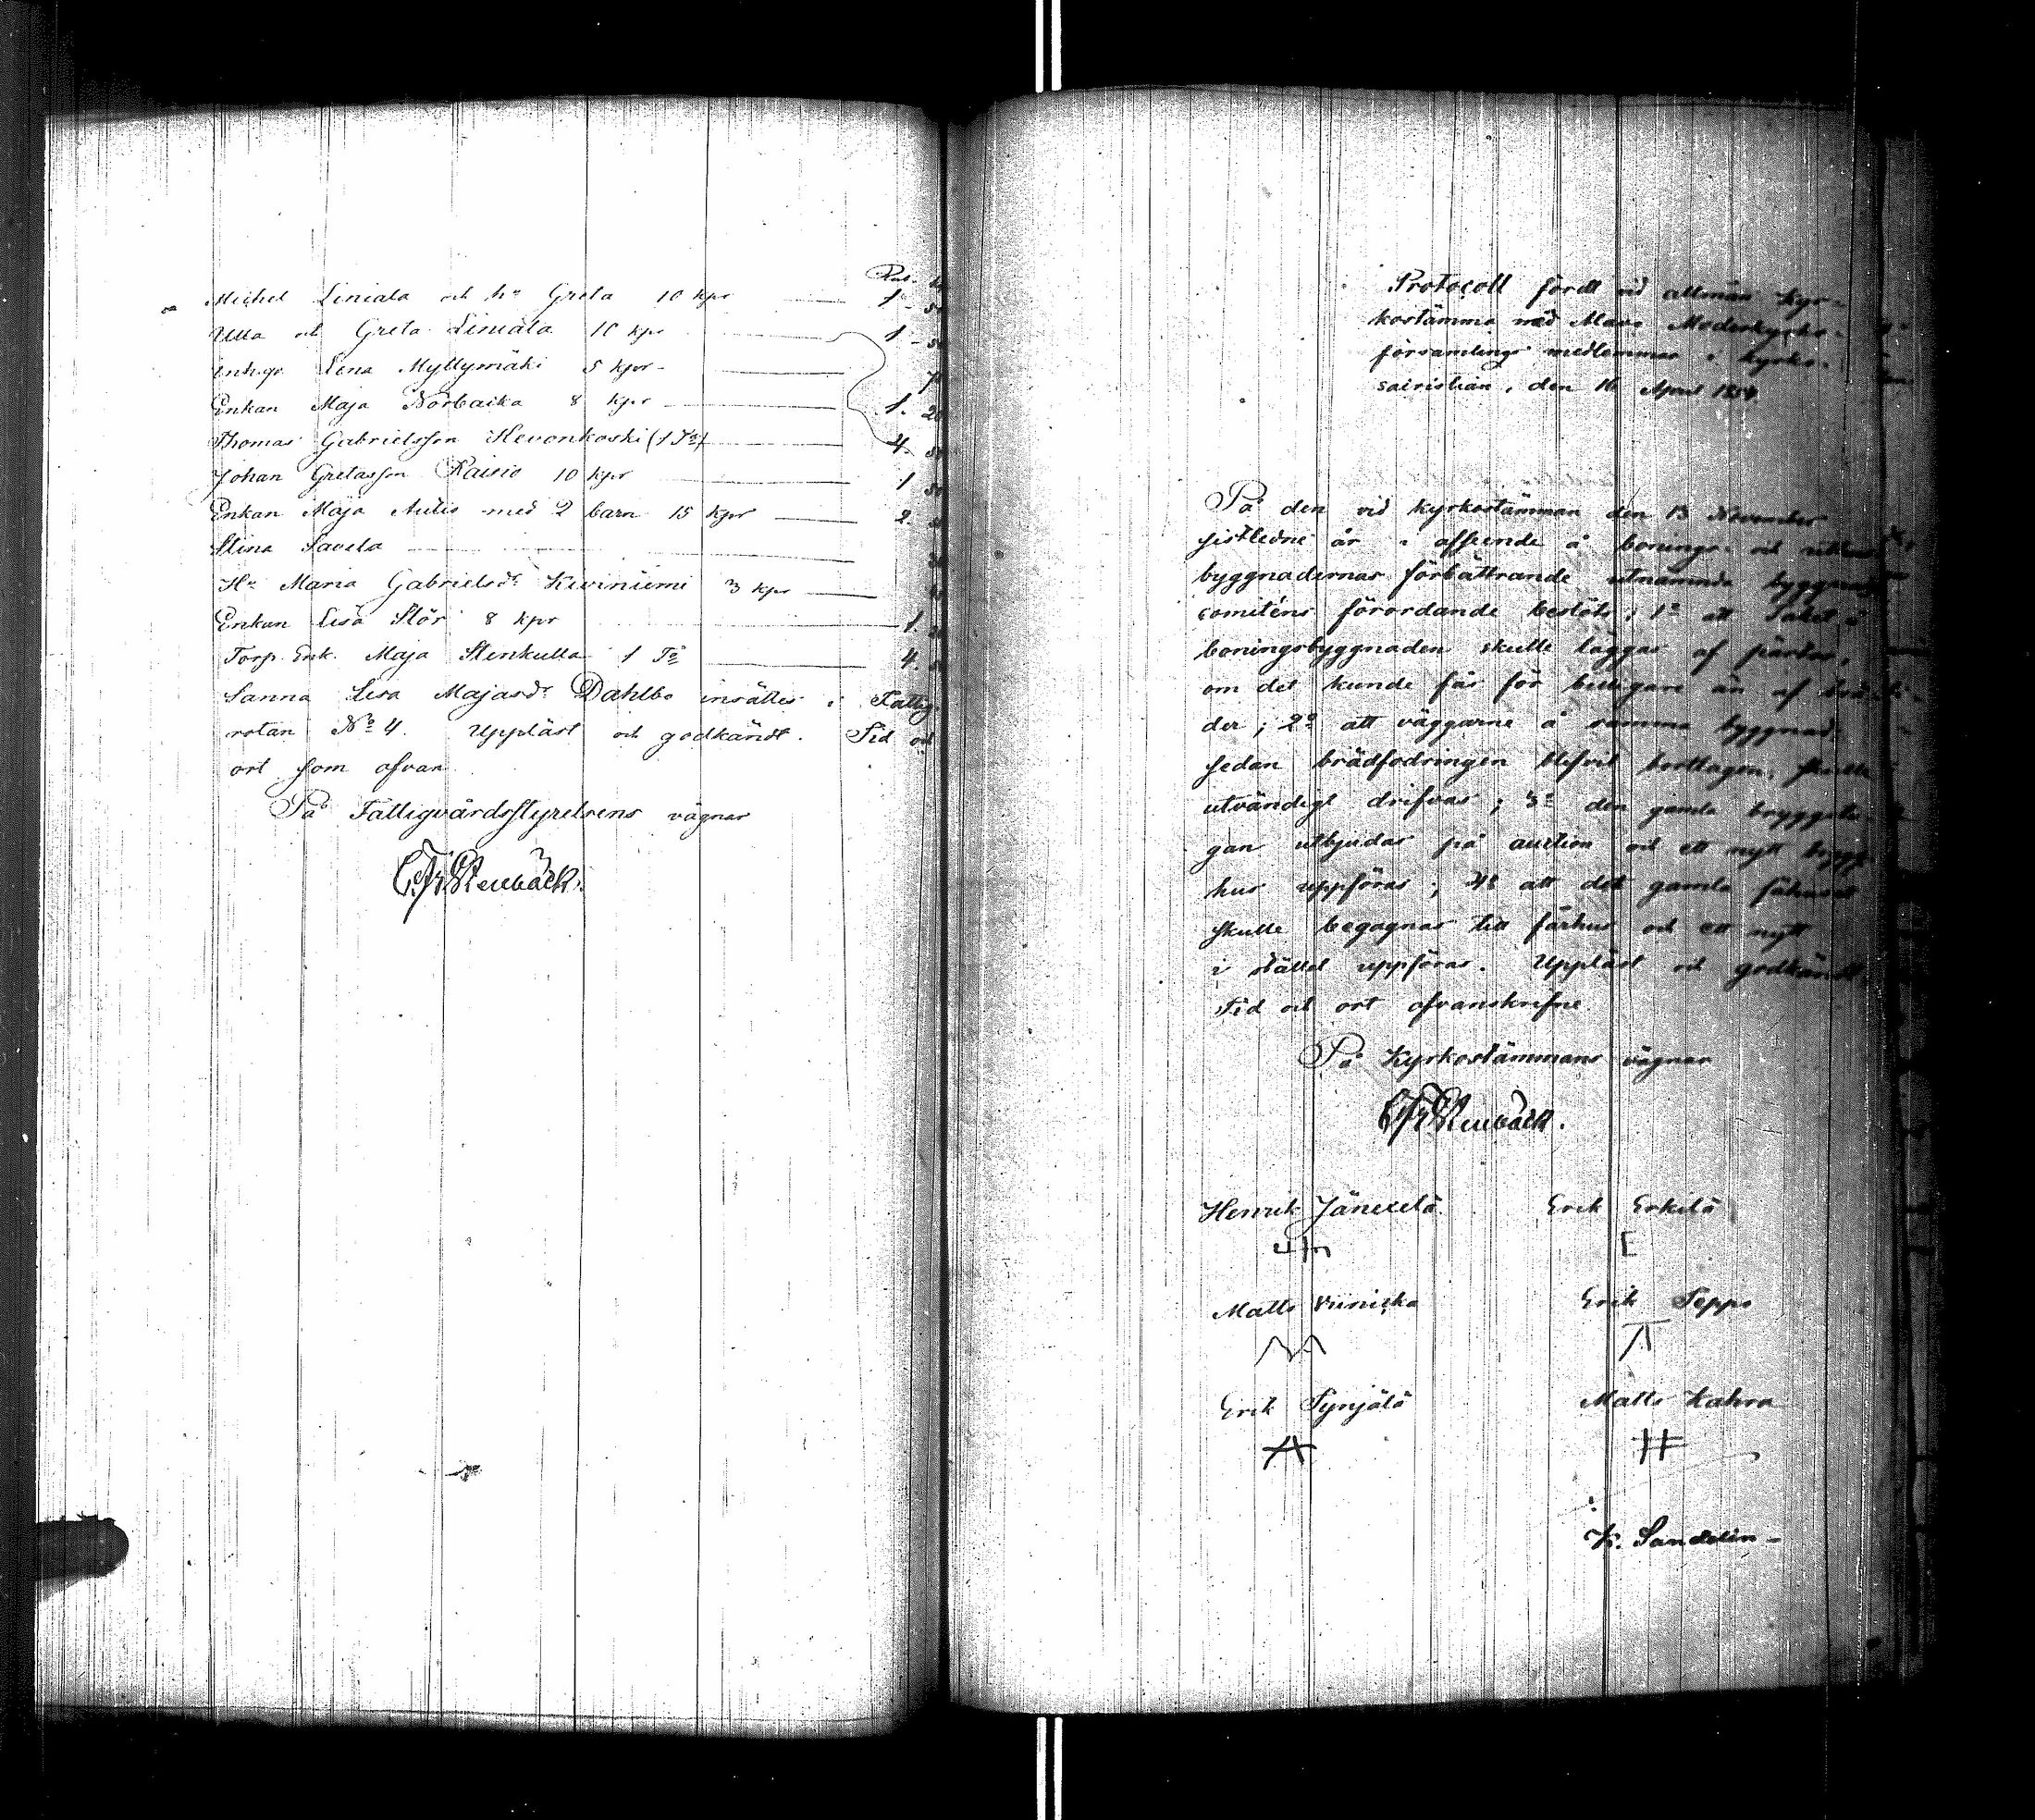 Rub. k
Michel Liniala och hu Greta 10 kpr 1. 50
Ulla och Greta Liniala 10 kpr 1. 50
Inh.gr Lena Myllymäki 5 kpr 7
Enkan Maja Norbacka 8 kpr 1. 20
Thomas Gabrielsson Hevonkoski (1 Ta) 4. 50
Johan Gretasson Raisio 10 kpr 1 50
Enkan Maja Autio med 2 barn 15 kpr 2.
Stina Savela
Hu Maria Gabrielsdr Keviniemi 3 kpr
Enkan Lisa Stör 8 kpr 1. 20
Torp. Enk. Maja Stenkulla 1 Ta 4. 5
Sanna Lisa Majasdr Dahlbo insättes i Fattig
rotan No 4. Uppläst och godkändt. Tid och
ort som ofvan
På Fattigvårdsstyrelsens vägnar
C. Fr. Stenbäck.
Protocoll fördt vid allmän Kyr-
kostämma med Moderkyrko-
församlings medlemmar i kyrko-
sacristian, den 16 April 1854
På den vid Kyrkostämman den 13 November
sistledne år i afseende å bonings- och uthus
byggnadernas förbättrande utnämnde byggnads
comiténs förordande beslöts; 1o att taket å
boningsbyggnaden skulle läggas af pärtor,
om det kunde fås för billigare än af brä-
der; 2o att väggarne å samma byggnad,
sedan brädfodringen blifvit borttagen, skulle
utvändigt drifvas; 3o den gamla bryggstu-
gan utbjudas på auction och ett nytt brygg-
hus uppföras; 4o att det gamla fähuset
skulle begagnas till fårhus och ett nytt
i stället uppföras. Uppläst och godkändt,
Tid och ort ofvanskrifne.
På Kyrkostämmans vägnar
C. Fr. Stenbäck.
Henrik Jäneselä Erik Erkilä
E
Matts Viiniska Erik Seppo
Erik Tynjälä Matts Kahra
K. Sandelin